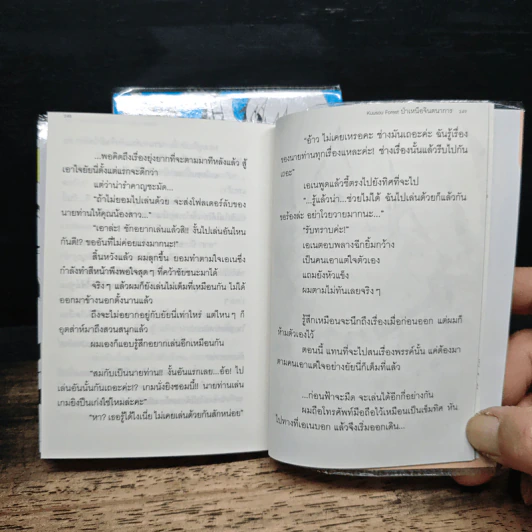 ...พอคิดถึงเรื่องยุ่งยากที่จะตามมาทีหลังแล้ว สู้
เอาใจยัยนี่ตั้งแต่แรกจะดีกว่า
แต่ว่าน่ารำคาญชะมัด...
"ถ้าไม่ยอมไปเล่นด้วย จะส่งไฟลเดอร์ลับของ
นายท่านให้คุณน้องสาว..."
"เอาล่ะ! ชักอยากเล่นแล้วสิ! งั้นไปเล่นอันไหน
กันดี!? ขออันที่ไม่ค่อยแรงมากนะ!"
สิ้นหวังแล้ว ผมลุกขึ้น ยอมทำตามใจเอเนซึ่ง
กำลังทำสีหน้าพึงพอใจสุดๆ ที่คว้าชัยชนะมาได้
จริงๆ แล้วผมก็ยังเล่นไม่เต็มที่เหมือนกัน ไม่ได้
ออกมาข้างนอกตั้งนานแล้ว
ถึงจะไม่อยากอยู่กับยัยนี่เท่าไหร่ แต่ไหนๆ ก็
อุตส่าห์มาถึงสวนสนุกแล้ว
ผมเองก็แอบรู้สึกอยากเล่นอีกเหมือนกัน
"สมกับเป็นนายท่าน!! งั้นอันแรกเลย...อ้อ! ไป
เล่นอันนั้นกันเถอะค่ะ!? เกมนั่งยิงซอมบี้! นายท่านเล่น
เกมยิงปืนเก่งใช่ไหมล่ะคะ"
"หา? เธอรู้ได้ไงเนี่ย ไม่เคยเล่นด้วยกันสักหน่อย"
Kagerou Project ป่าเหนือจินตนาการ
"อ้าว ไม่เคยเหรอคะ ช่างมันเถอะค่ะ ฉันรู้เรื่อง
ของนายท่านทุกเรื่องแหละค่ะ! ช่างเรื่องนั้นแล้วรีบไปกัน
เถอะ"
เอเนพูดแล้วชี้ตรงไปยังทิศที่จะไป
"...รู้แล้วน่า...ช่วยไม่ได้ ฉันไปเล่นด้วยก็แล้วกัน
ขอร้องล่ะ อย่าโวยวายมากนะ..."
"รับทราบค่ะ!"
เอเนตอบพลางฉีกยิ้มกว้าง
เป็นคนเอาแต่ใจตัวเอง
แถมยังหัวแข็ง
ผมตามไม่ทันเลยจริงๆ
รู้สึกเหมือนจะนึกถึงเรื่องเมื่อก่อนออก แต่ผมก็
ห้ามตัวเองไว้
ตอนนี้ แทนที่จะไปสนเรื่องพรรค์นั้น แค่ต้องมา
ตามคนเอาแต่ใจอย่างยัยนี่ก็เต็มที่แล้ว
...ก่อนฟ้าจะมืด จะเล่นได้อีกกี่อย่างกัน
ผมถือโทรศัพท์มือถือไว้เหมือนเป็นเข็มทิศ หัน
ไปทางที่เอเนบอก แล้วจึงเริ่มออกเดิน...